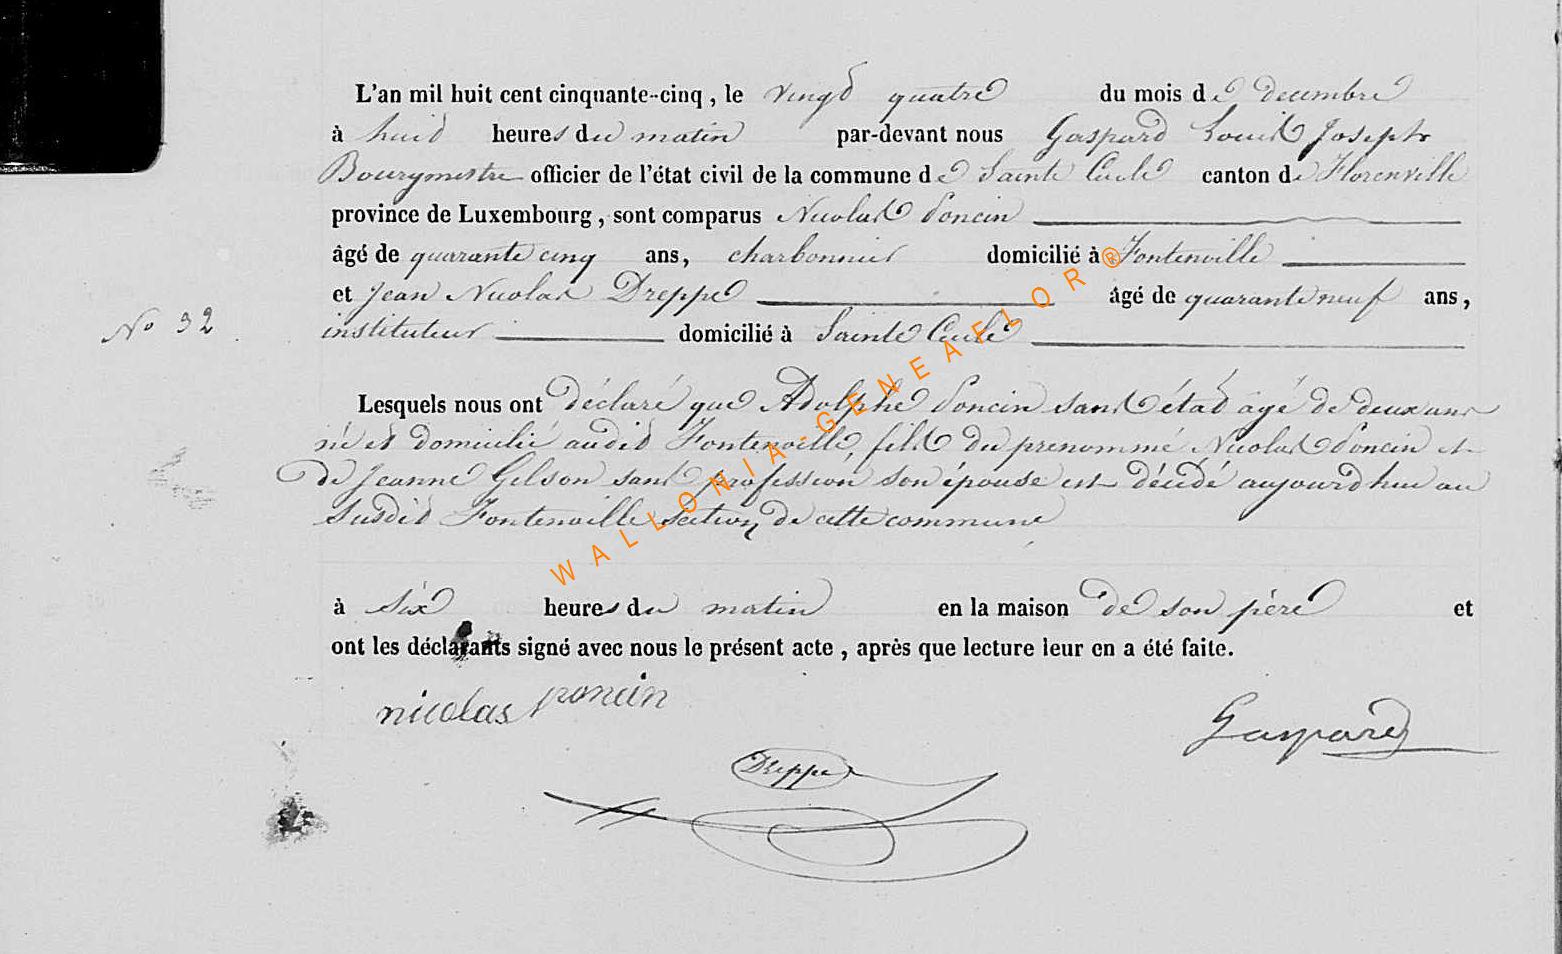 L'an mil huit cent cinquante-cinq, le vingt quatre du mois de decembre
à huit heures du matin par-devant nous Gaspard Louis Joseph
Bourgmestre officier de l'état civil de la commune de Sainte Cecile canton de Florenville
province de Luxembourg, sont comparus Nicolas Poncin
âgé de quarante cinq ans, charbonnier domicilié à Fontenoille
et Jean Nicolas Dreppe âgé de quarante neuf ans,
No 32
instituteur domicilié à Sainte Cecile
Lesquels nous ont déclaré que Adolphe Poncin sans état âgé de deux ans
né et domicilié audit Fontenoille, fils du prenommé Nicolas Poncin et
de Jeanne Gilson sans profession son épouse est décédé aujourd'hui au
susdit Fontenoille section de cette commune
à six heures du matin en la maison de son père et
ont les déclarants signé avec nous le présent acte, après que lecture leur en a été faite.
nicolas poncin
Gaspard
Dreppe
WALLONIA-GENEAFLOR®